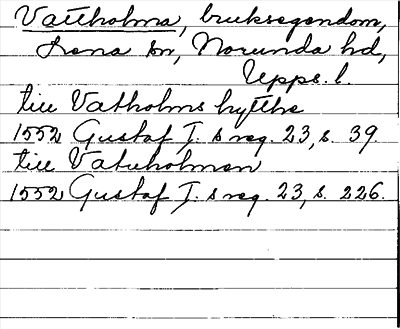 Vattholma, bruksegendom,
Lena sn, Norunda hd,
Upps. l.
till Vatholms hytthe
1552 Gustaf I. s reg. 23, s. 39
till Vatuholmen
1552 Gustaf I. s reg. 23, s. 226.